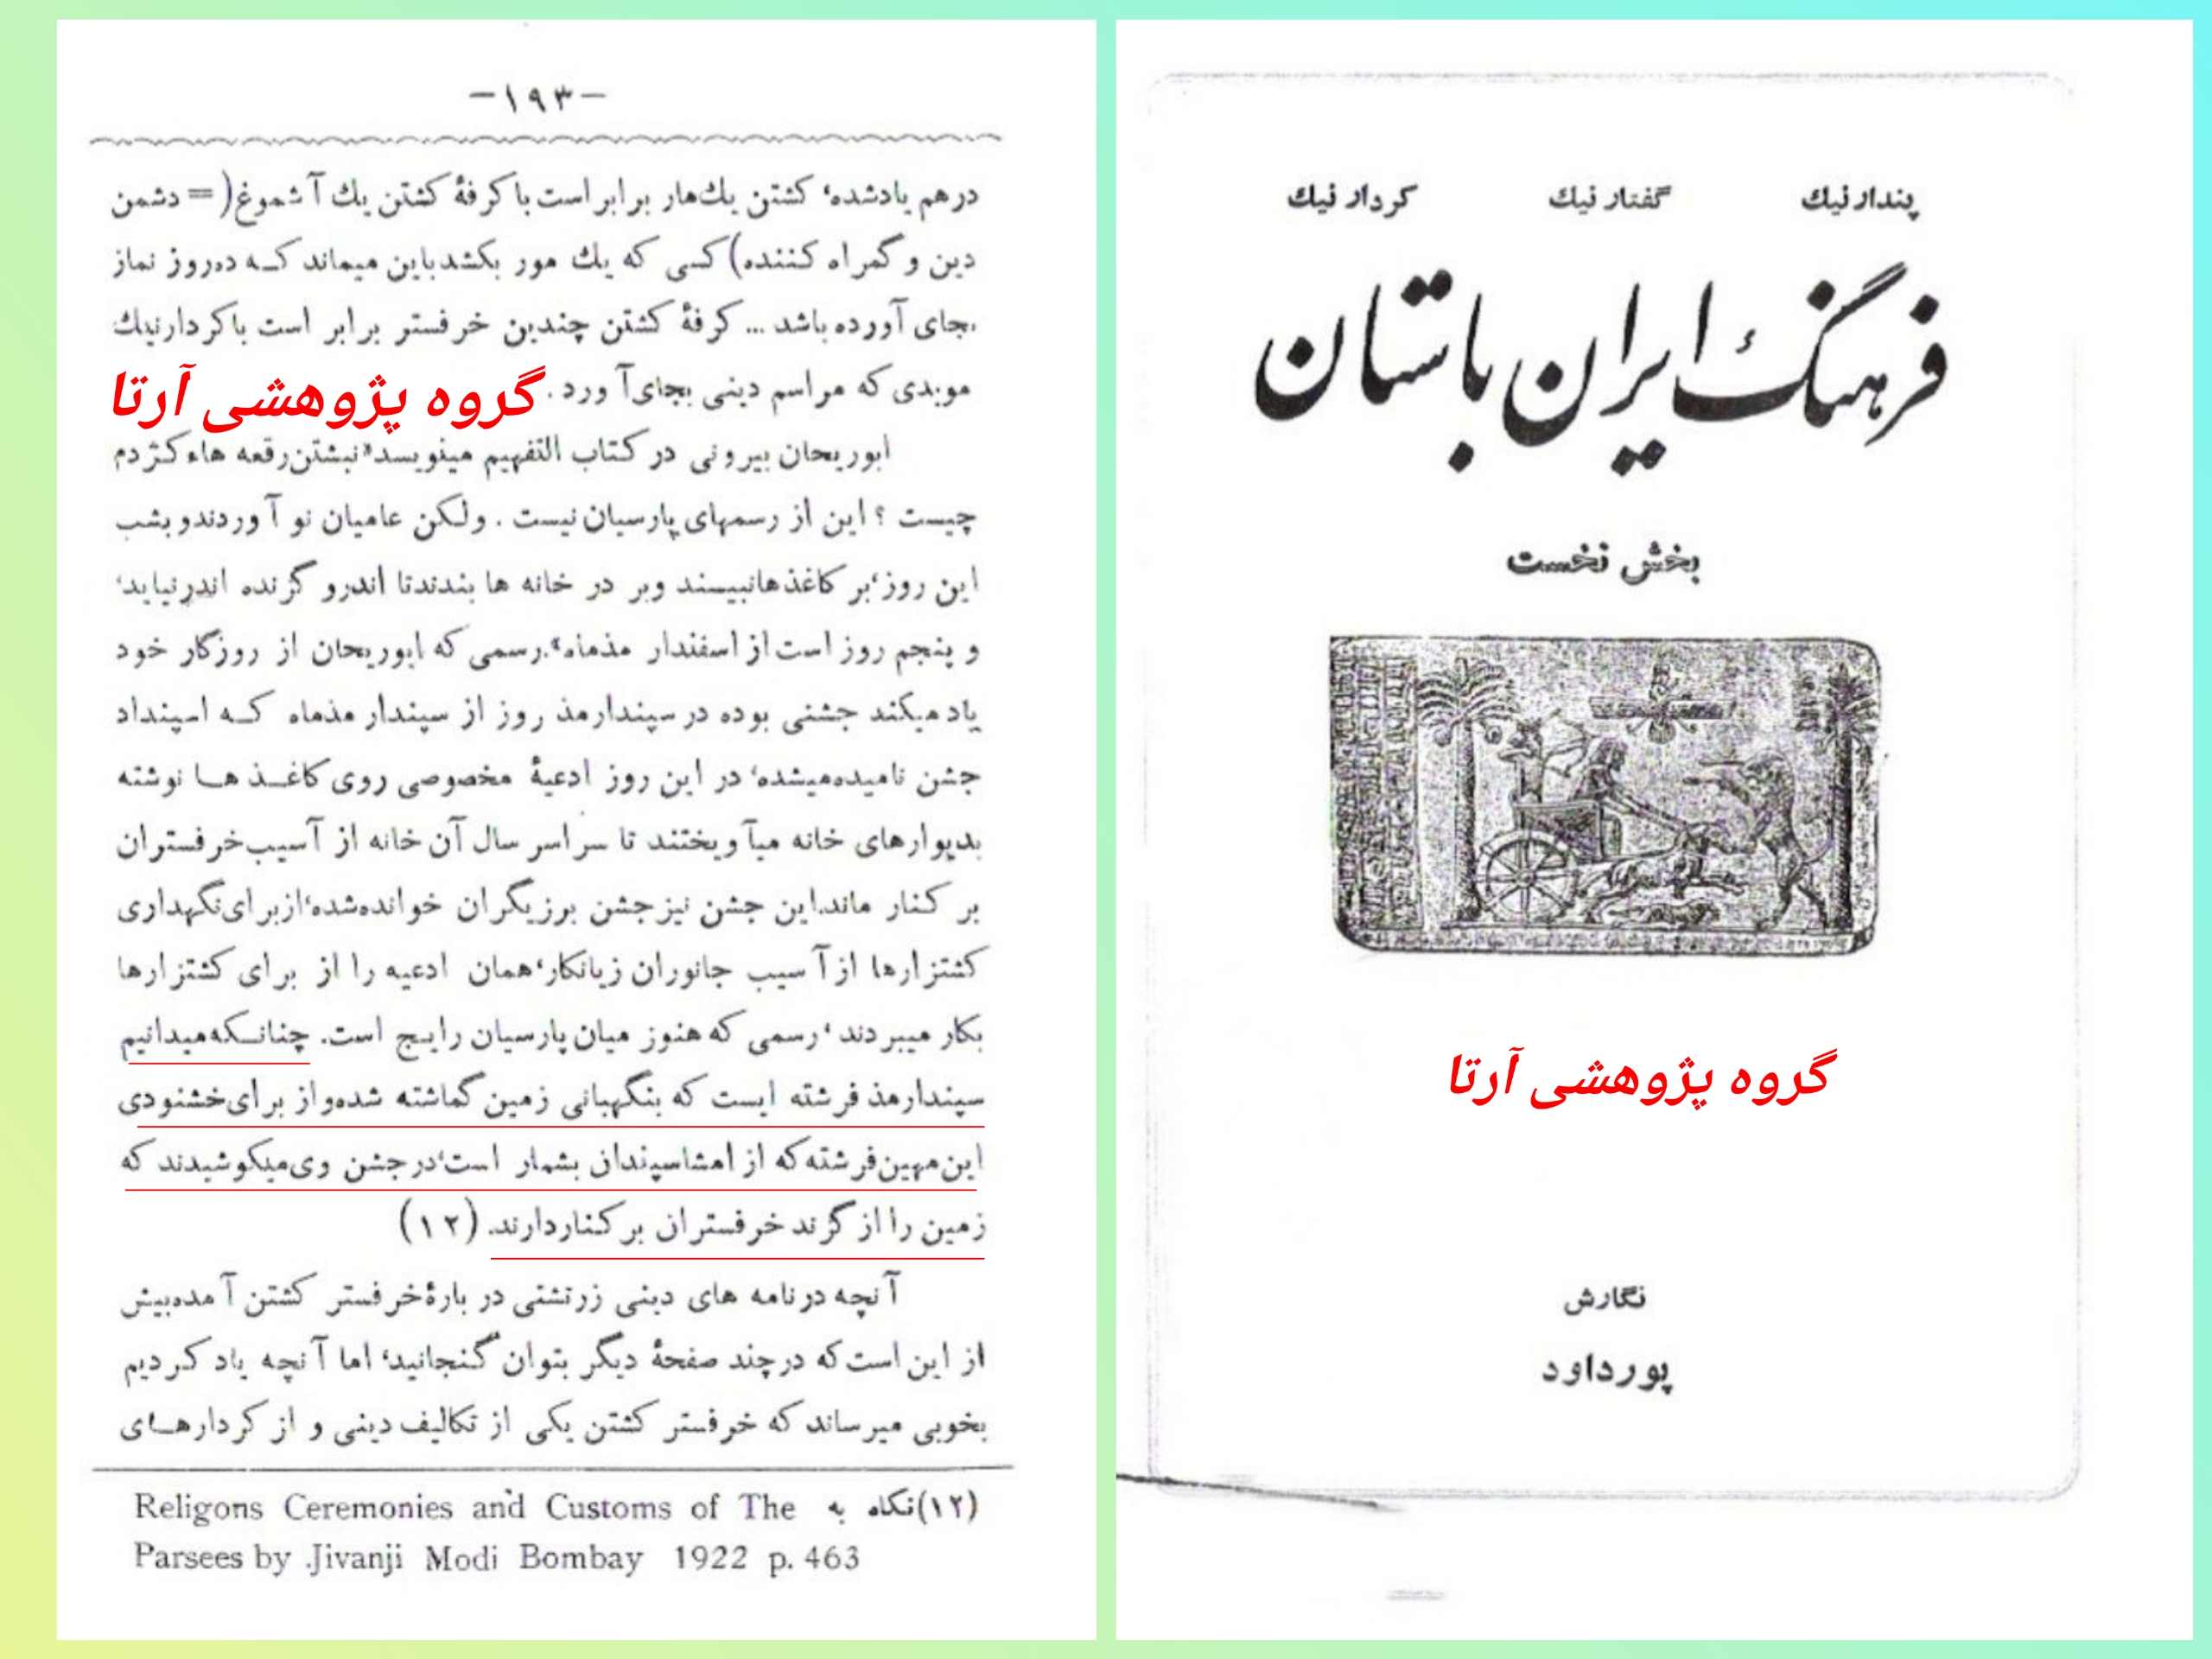 -۱۹۳-
درهم یادشده، کشتن یك‌مار برابر است با کرفهٔ کشتن یك آشموغ (= دشمن
دین و گمراه کننده) کسی که یك مور بکشد باین میماند کـه ده‌روز نماز
بجای آورده باشد ... کرفهٔ کشتن چندین خرفستر برابر است با کردار نیك
موبدی که مراسم دینی بجای آورد.
گروه پژوهشی آرتا
ابوریحان بیرونی در کتاب التفهیم مینویسد «نبشتن رقعه هاء کژدم
چیست ؟ این از رسمهای پارسیان نیست . ولکن عامیان نو آوردند و بشب
این روز، بر کاغذها نبیسند وبر در خانه ها بندند تا اندرو گزنده اندر نیاید،
و پنجم روز است از اسفندار مذماه». رسمی که ابوریحان از روزگار خود
یاد میکند جشنی بوده در سپندارمذ روز از سپندار مذماه کـه اسپنداد
جشن نامیده‌میشده، در این روز ادعیهٔ مخصوصی روی کاغـذ هـا نوشته
بدیوارهای خانه میآویختند تا سراسر سال آن خانه از آسیب خرفستران
بر کـنار ماند. این جشن نیز جشن برزیگران خوانده‌شده، از برای نگهداری
کشتزارها از آسیب جانوران زیانکار، همان ادعیه را از برای کشتزارها
بکار میبردند ، رسمی که هنوز میان پارسیان رایـج است. چنانـکه میدانیم
سپندارمذ فرشته ایست که بنگهبانی زمین گماشته شده‌و از برای خشنودی
این مهین فرشته که از امشاسپندان بشمار است، در جشن وی میکوشیدند که
زمین را از گزند خرفستران بر کنار دارند. (۱۲)
آنچه در نامه های دینی زرتشتی در بارهٔ خرفستر کشتن آمده بیش
از این است که در چند صفحهٔ دیگر بتوان گنجانید، اما آنچه یاد کردیم
بخوبی میرساند که خرفستر کشتن یکی از تکالیف دینی و از کردارهـای
(۱۲) نگاه به Religons Ceremonies and Customs of The
Parsees by .Jivanji Modi Bombay 1922 p. 463
پندار نیك گفتار نیك کردار نیك
فرهنگ ایران باستان
بخش نخست
گروه پژوهشی آرتا
نگارش
پورداود